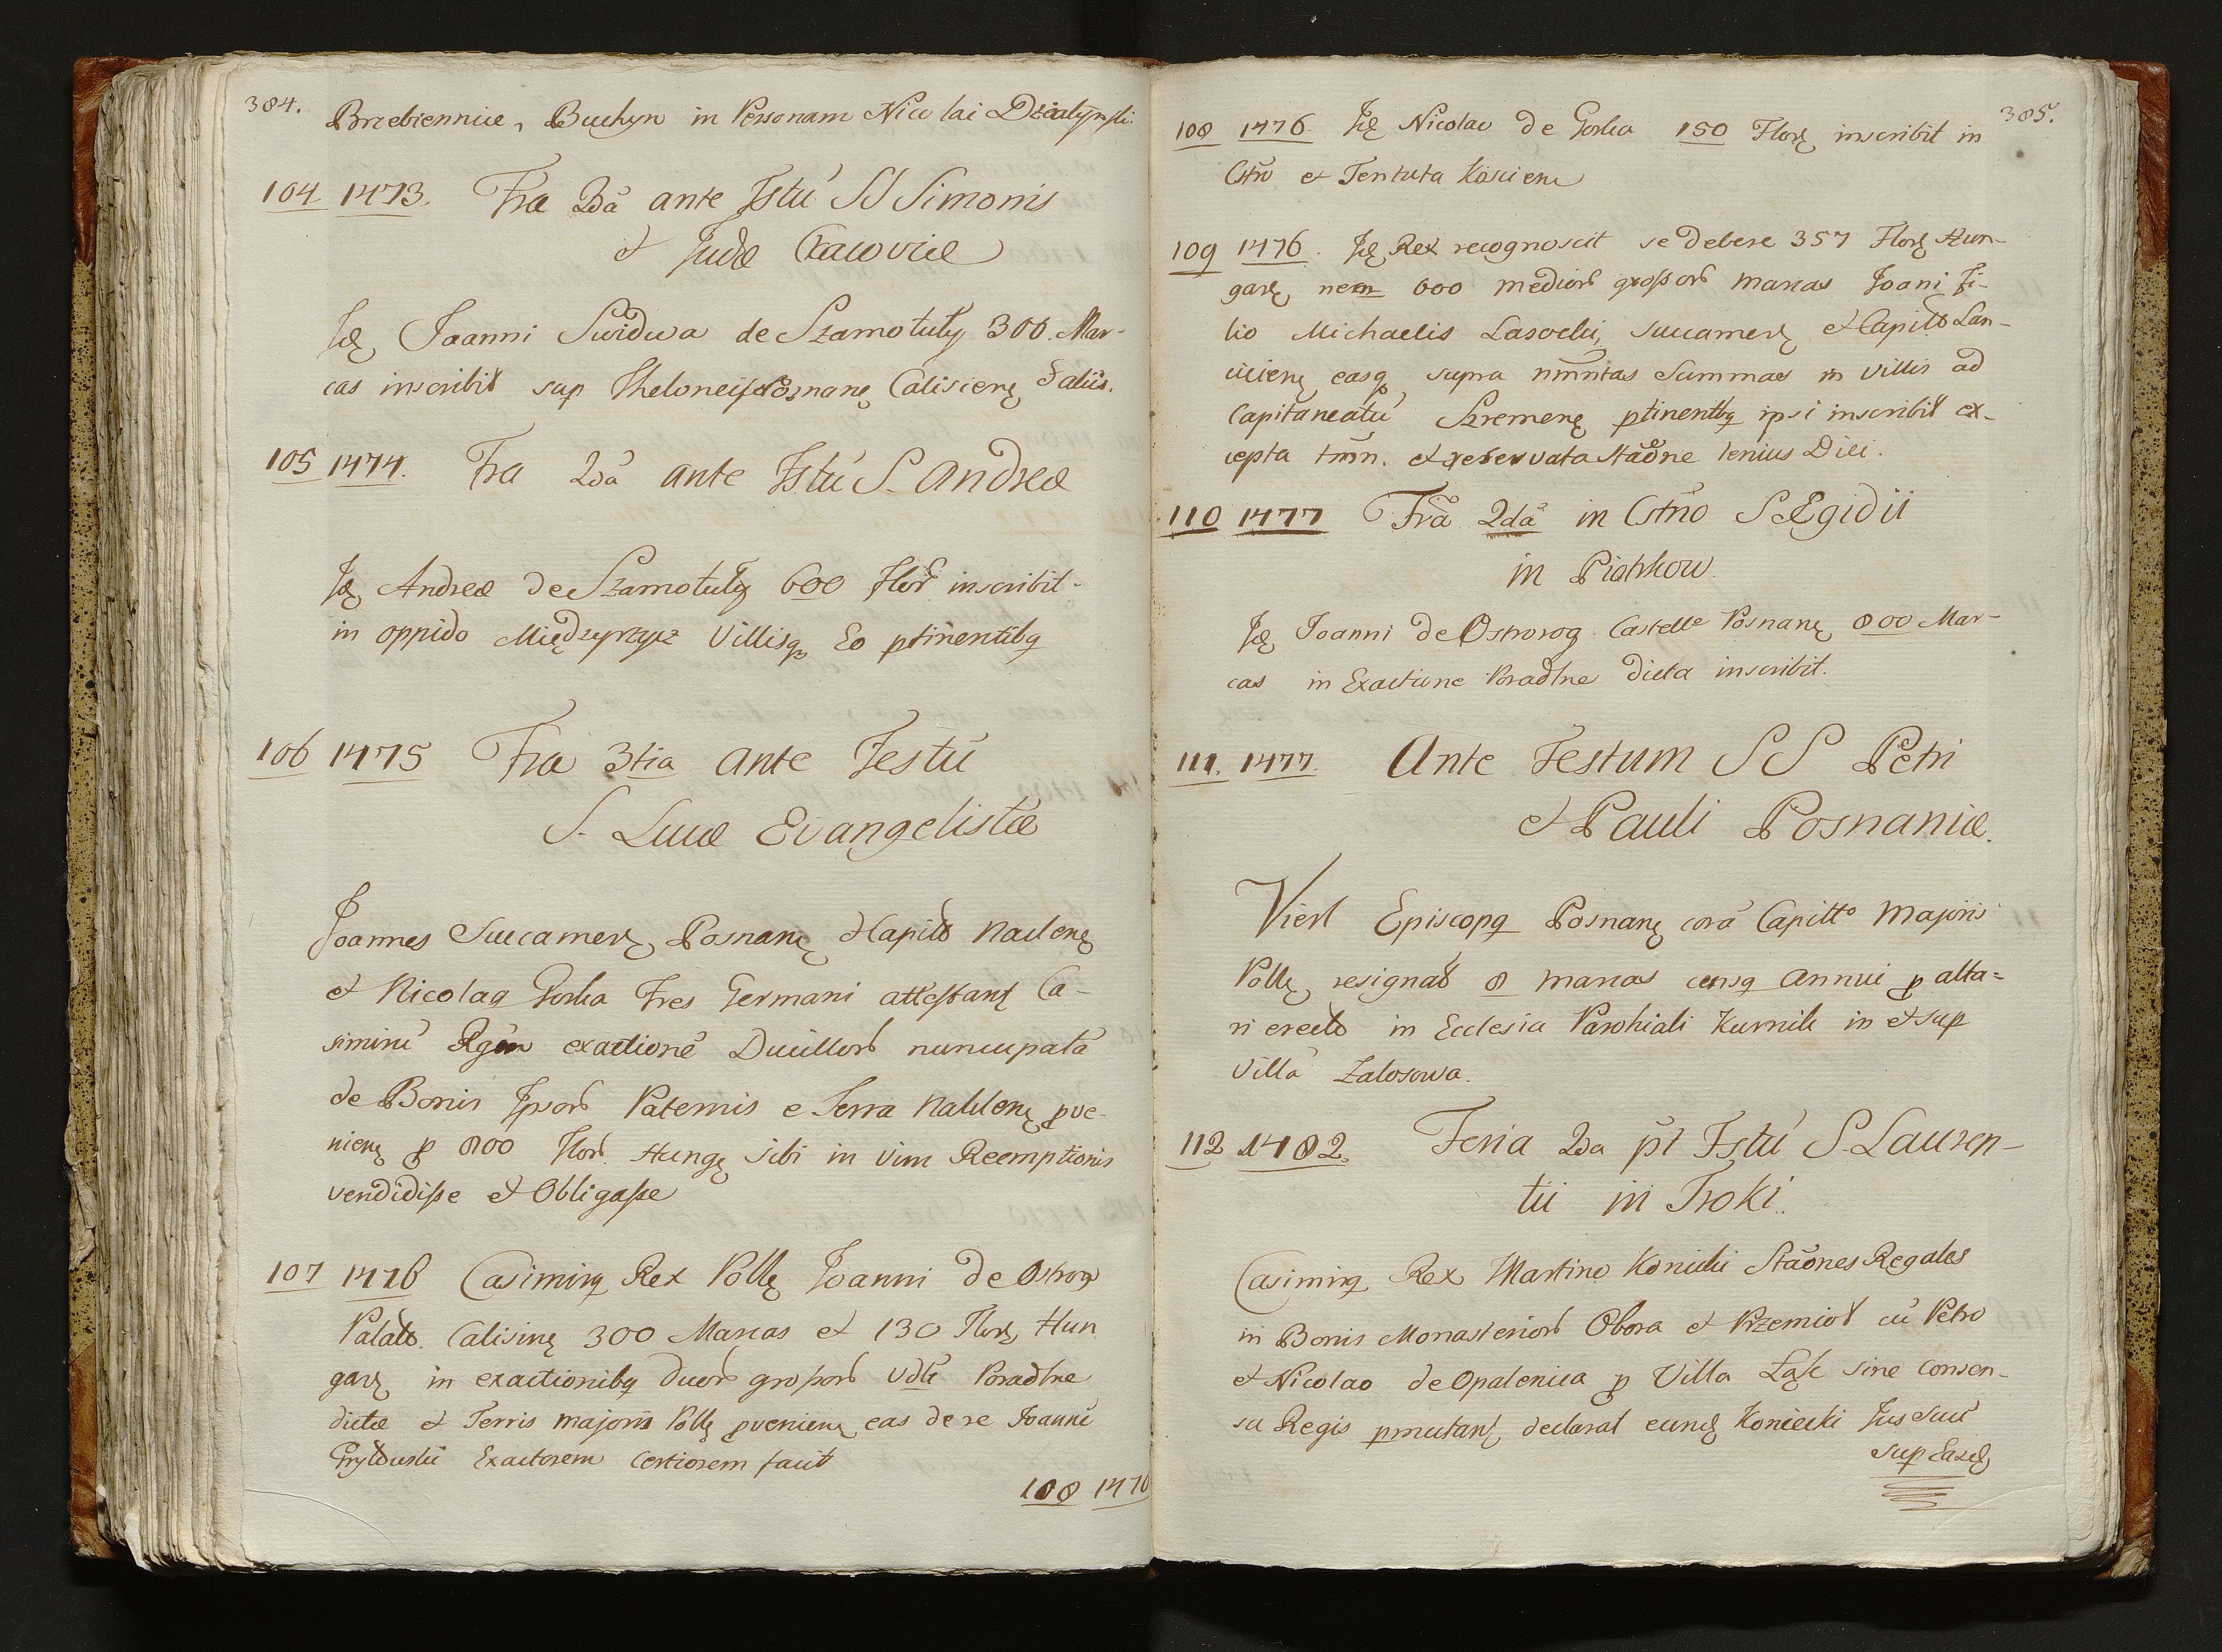 384.
Brzebiennice, Buchyn in Personam Nicolai Działyński.
104 1473. Fra 2dā ante Fstū SS Simonis
et Judæ Cracoviæ
Idę Joanni Swidwa de Szamotuły 300. Mar-
cas inscribit sup Theloneis Posnanę Calisienę & aliis.
105 1474. Fra 2dā ante Fstū S. Andreæ
Idę Andreæ de Szamotuły 600 flor inscribit
in oppido Międzyrzycz Villisq Eo ptinentibq
106 1475 Fra 3tia ante Festū
S. Lucæ Evangelistæ
Joannes Succamerę Posnanę et Capito Naclenę
et Nicolaq Gorka Fres Germani attestant Ca-
simirū Rgem exactionē Ducillor nuncupatā
de Bonis Ipsor Paternis e Terra Naklenę pve-
nienę p 800 flor Hungę sibi in vim Reemptionis
vendidisse et Obligasse
107 1476 Casimirq Rex Pollę Joanni de Ostrorog
Palato. Calisinę 300 Marcas et 130 Florę Hun
garę in exactionibq duor grossor vdlt Poradlne
dictæ et Terris majoris Pollę pvenienę eas de re Joannē
Exactorem certiorem facit
108 1476
385.
108 1476. Idę Nicolao de Gorka 150 Florę inscribit in
Cstro et Tentuta Kościenę
109 1476. Idę Rex recognoscit se debere 357 Florę Hun-
garę nem 600 medior grossor marcas Joani fi-
lio Michaelis Lasocki, succamerę et Capito Lan-
cicienę easq supra nmntas Summas in villis ad
Capitaneatū Szremenę ptinentbq ipsi inscribit ex-
cepta tmn. et reservata stāone tenius Dici.
110 1477 Frā 2dā in Cstño S Ægidii
in Piotrkow.
Idę Joanni de Ostrorog Castello Posnanę 800 Mar-
cas in Exactione Poradlne dicta inscribit.
111. 1477. Ante Festum SS Petri
et Pauli Posnaniæ.
Viel Episcopq Posnanę corā Capitto Majoris
Pollę resignat 8 marcas censq Annui p alta=
ri erecto in Ecclesia Parohiali Kurnik in et sup
villā Zalosowa.
112 1482. Feria 2da pt Fstū S. Lauren-
tii in Troki.
Casimirq Rex Martino Koniecki Stāones Regales
in Bonis Monasterior Obora et Przemiot cū Petro
et Nicolao de Opalenica p Villa Łąk sine consen-
su Regis pmutant, declarat eundę Koniecki Jus suū
sup Easdę